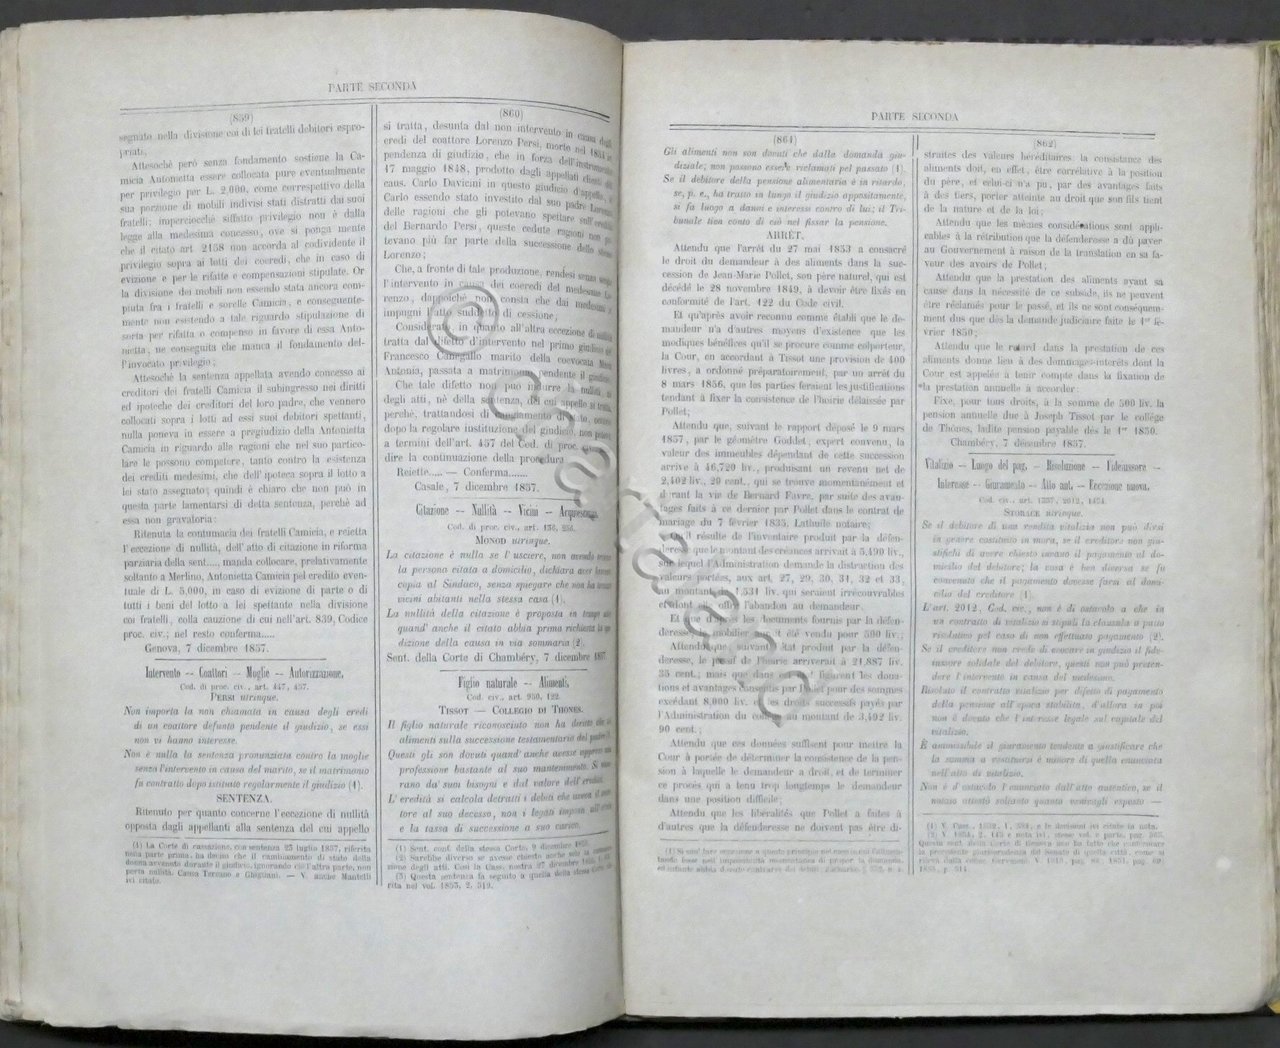 PARTE SECONDA
(859)
segnato nella divisione coi di lei fratelli debitori espro-
priati.
Attesochè però senza fondamento sostiene la Ca-
micia Antonietta essere collocata pure eventualmente
per privilegio per L. 2,000, come correspettivo della
sua porzione di mobili indivisi stati distratti dai suoi
fratelli; imperciocchè siffatto privilegio non è dalla
legge alla medesima concesso, ove si ponga mente
che il citato art 2158 non accorda al codividente il
privilegio sopra ai lotti dei coeredi, che in caso di
evizione e per le rifatte e compensazioni stipulate. Or
la divisione dei mobili non essendo stata ancora com-
piuta fra i fratelli e sorelle Camicia, e conseguente-
mente non esistendo a tale riguardo stipulazione di
sorta per rifatta o compenso in favore di essa Anto-
nietta, ne conseguita che manca il fondamento del-
l'invocato privilegio;
Attesochè la sentenza appellata avendo concesso ai
creditori dei fratelli Camicia il subingresso nei diritti
ed ipoteche dei creditori del loro padre, che vennero
collocati sopra i lotti ad essi suoi debitori spettanti,
nulla poneva in essere a pregiudizio della Antonietta
Camicia in riguardo alle ragioni che nel suo partico-
lare le possono competere, tanto contro la esistenza
dei crediti medesimi, che dell'ipoteca sopra il lotto a
lei stato assegnato; quindi è chiaro che non può in
questa parte lamentarsi di detta sentenza, perchè ad
essa non gravatoria:
Ritenuta la contumacia dei fratelli Camicia, e reietta
l'eccezione di nullità, dell'atto di citazione in riforma
parziaria della sent...., manda collocare, prelativamente
soltanto a Merlino, Antonietta Camicia pel credito even-
tuale di L. 5,000, in caso di evizione di parte o di
tutti i beni del lotto a lei spettante nella divisione
coi fratelli, colla cauzione di cui nell'art. 839, Codice
proc. civ.; nel resto conferma.....
Genova, 7 dicembre 1857.
Intervento — Coattori — Moglie — Autorizzazione.
Cod. di proc. civ., art. 447, 457.
PERSI utrinque.
Non importa la non chiamata in causa degli eredi
di un coattore defunto pendente il giudizio, se essi
non vi hanno interesse.
Non è nulla la sentenza pronunziata contro la moglie
senza l'intervento in causa del marito, se il matrimonio
fu contratto dopo istituto regolarmente il giudizio (1).
SENTENZA.
Ritenuto per quanto concerne l'eccezione di nullità
opposta dagli appellanti alla sentenza del cui appello
(1) La Corte di cassazione, con sentenza 25 luglio 1857, riferita
nella parte prima, ha deciso che il cambiamento di stato della
donna avvenuto durante il giudizio, ignorando ciò l'altra parte, non
porta nullità. Causa Ternano e Ghigliani. — V. anche Mantelli
ivi citato.
(860)
si tratta, desunta dal non intervento in causa degli
eredi del coattore Lorenzo Persi, morto nel 1854 in
pendenza di giudizio, che in forza dell'instrumento
17 maggio 1848, prodotto dagli appellati
caus. Carlo Davicini in questo giudizio d'appello, il
Carlo essendo stato investito dal suo padre Lorenzo
delle ragioni che gli potevano spettare sull'eredità
del Bernardo Persi, queste cedute ragioni non po-
tevano più far parte della successione dello stesso
Lorenzo;
Che, a fronte di tale produzione, rendesi senza scopo
l'intervento in causa dei coeredi del medesimo Lo-
renzo, dappoichè non consta che dai medesimi si
impugni l'atto suddetto di cessione,
Considerato in quanto all'altra eccezione di nullità
tratta dal difetto d'intervento nel primo giudizio del
Francesco Canegallo marito della coevocata Maria
Antonia, passata a matrimonio pendente il giudizio,
Che tale difetto non può indurre la nullità, nè
degli atti, nè della sentenza, del cui appello si tratta,
perchè, trattandosi di cangiamento di stato, occorso
dopo la regolare instituzione del giudizio, non poteva
a termini dell'art. 457 del Cod. di proc. civ., impe-
dire la continuazione della procedura
Reiette..... — Conferma......
Casale, 7 dicembre 1857.
Citazione — Nullità — Vicini — Acquiescenza.
Cod. di proc. civ., art. 136, 256.
MONOD utrinque.
La citazione è nulla se l'usciere, non avendo trovato
la persona citata a domicilio, dichiara aver lasciato
copia al Sindaco, senza spiegare che non ha trovato
vicini abitanti nella stessa casa (1).
La nullità della citazione è proposta in tempo utile
quand'anche il citato abbia prima richiesta la spe-
dizione della causa in via sommaria (2).
Sent. della Corte di Chambéry, 7 dicembre 1857.
Figlio naturale — Alimenti.
Cod. civ., art. 950, 122.
TISSOT — COLLEGIO DI THONES.
Il figlio naturale riconosciuto non ha diritto che ad
alimenti sulla successione testamentaria del padre (3).
Questi gli son dovuti quand'anche avesse appreso una
professione bastante al suo mantenimento. Si misu-
rano da' suoi bisogni e dal valore dell'eredità.
L'eredità si calcola detratti i debiti che aveva il geni-
tore al suo decesso, non i legati imposti all'erede
e la tassa di successione a suo carico.
(1) Sent. conf. della stessa Corte, 9 dicembre 1857.
(2) Sarebbe diverso se avesse chiesto anche solo la comuni-
cazione degli atti. Così in Cass. nostra 27 dicembre
(3) Questa sentenza fa seguito a quella della stessa Corte rife-
rita nel vol. 1853, 2. 519.
PARTE SECONDA
(861)
Gli alimenti non son dovuti che dalla domanda giu-
diziale; non passono essere reclamati pel passato (1).
Se il debitore della pensione alimentaria è in ritardo,
se, p. e., ha tratto in lungo il giudizio appositamente,
si fa luogo a danni e interessi contro di lui; il Tri-
bunale tien conto di ciò nel fissar la pensione.
ARRÊT.
Attendu que l'arrêt du 27 mai 1853 a consacré
le droit du demandeur à des aliments dans la suc-
cession de Jean-Marie Pollet, son père naturel, qui est
décédé le 28 novembre 1849, à devoir être fixés en
conformité de l'art. 122 du Code civil.
Et qu'après avoir reconnu comme établi que le de-
mandeur n'a d'autres moyens d'existence que les
modiques bénéfices qu'il se procure comme colporteur,
la Cour, en accordant à Tissot une provision de 400
livres, a ordonné préparatoirement, par un arrêt du
8 mars 1856, que les parties feraient les justifications
tendant à fixer la consistence de l'hoirie délaissée par
Pollet;
Attendu que, suivant le rapport déposé le 9 mars
1857, par le géomètre Goddet, expert convenu, la
valeur des immeubles dépendant de cette succession
arrive à 46,720 liv., produisant un revenu net de
2,402 liv., 29 cent., qui se trouve momentanément et
durant la vie de Bernard Favre, par suite des avan-
tages faits à ce dernier par Pollet dans le contrat de
mariage du 7 février 1835, Lathuile notaire;
Qu'il résulte de l'inventaire produit par la défen-
deresse que le montant des créances arrivait à 5,490 liv.,
sur lequel l'Administration demande la distraction des
valeurs portées, aux art. 27, 29, 30, 31, 32 et 33,
au montant de 1,531 liv. qui seraient irrécouvrables
et dont elle fait l'abandon au demandeur.
Et que d'après les documents fournis par la défen-
deresse, le mobilier aurait été vendu pour 590 liv.;
Attendu que, suivant l'état produit par la défen-
deresse, le passif de l'hoirie arriverait à 21,887 liv.
35 cent., mais que dans ce passif figurent les dona-
tions et avantages consentis par Pollet pour des sommes
excédant 8,000 liv. et les droits successifs payés par
l'Administration du collége au montant de 3,492 liv.
90 cent.;
Attendu que ces données suffisent pour mettre la
Cour à portée de déterminer la consistence de la pen-
sion à laquelle le demandeur a droit, et de terminer
ce procès qui a tenu trop longtemps le demandeur
dans une position difficile;
Attendu que les libéralités que Pollet a faites à
d'autres que la défenderesse ne doivent pas être di-
(862)
straites des valeurs héréditaires: la consistance des
aliments doit, en effet, être corrélative à la position
du père, et celui-ci n'a pu, par des avantages faits
à des tiers, porter atteinte au droit que son fils tient
de la nature et de la loi;
Attendu que les mêmes considérations sont appli-
cables à la rétribution que la défenderesse a dû payer
au Gouvernement à raison de la translation en sa fa-
veur des avoirs de Pollet;
Attendu que la prestation des aliments ayant sa
cause dans la nécessité de ce subside, ils ne peuvent
être réclamés pour le passé, et ils ne sont conséquem-
ment dus que dès la demande judiciaire faite le 1er fé-
vrier 1850;
Attendu que le retard dans la prestation de ces
aliments donne lieu à des dommages-intérêts dont la
Cour est appelée à tenir compte dans la fixation de
la prestation annuelle à accorder:
Fixe, pour tous droits, à la somme de 500 liv. la
pension annuelle due à Joseph Tissot par le collége
de Thônes, ladite pension payable dès le 1er 1850.
Chambéry, 7 décembre 1857.
Vitalizio — Luogo del pag. — Risoluzione — Fideiussore —
Interesse — Giuramento — Atto aut. — Eccezione nuova.
Cod. civ., art. 1337, 2012, 1474.
STORACE utrinque.
Se il debitore di una rendita vitalizia non può dirsi
in grave costituito in mora, se il creditore non giu-
stifichi di avere chiesto invano il pagamento al do-
micilio del debitore; la cosa è ben diversa se fu
convenuto che il pagamento dovesse farsi al domi-
cilio del creditore (1).
L'art. 2012, Cod. civ., non è di ostacolo a che in
un contratto di vitalizio si stipuli la clausola a patto
risolutivo pel caso di non effettuato pagamento (2).
Se il creditore non crede di evocare in giudizio il fide-
iussore solidale del debitore, questi non può preten-
dere l'intervento in causa del medesimo.
Risoluto il contratto vitalizio per difetto di pagamento
della pensione all'epoca stabilita, d'allora in poi
non è dovuto che l'interesse legale sul capitale del
vitalizio.
È ammissibile il giuramento tendente a giustificare che
la somma a restituirsi è minore di quella enunciata
nell'atto di vitalizio.
Non è d'ostacolo l'enunciato dall'atto autentico, se il
notaio attestò soltanto quanto venivagli esposto —
(1) V. Cass., 1852. 1, 581, e le decisioni ivi citate in nota.
© Cartado